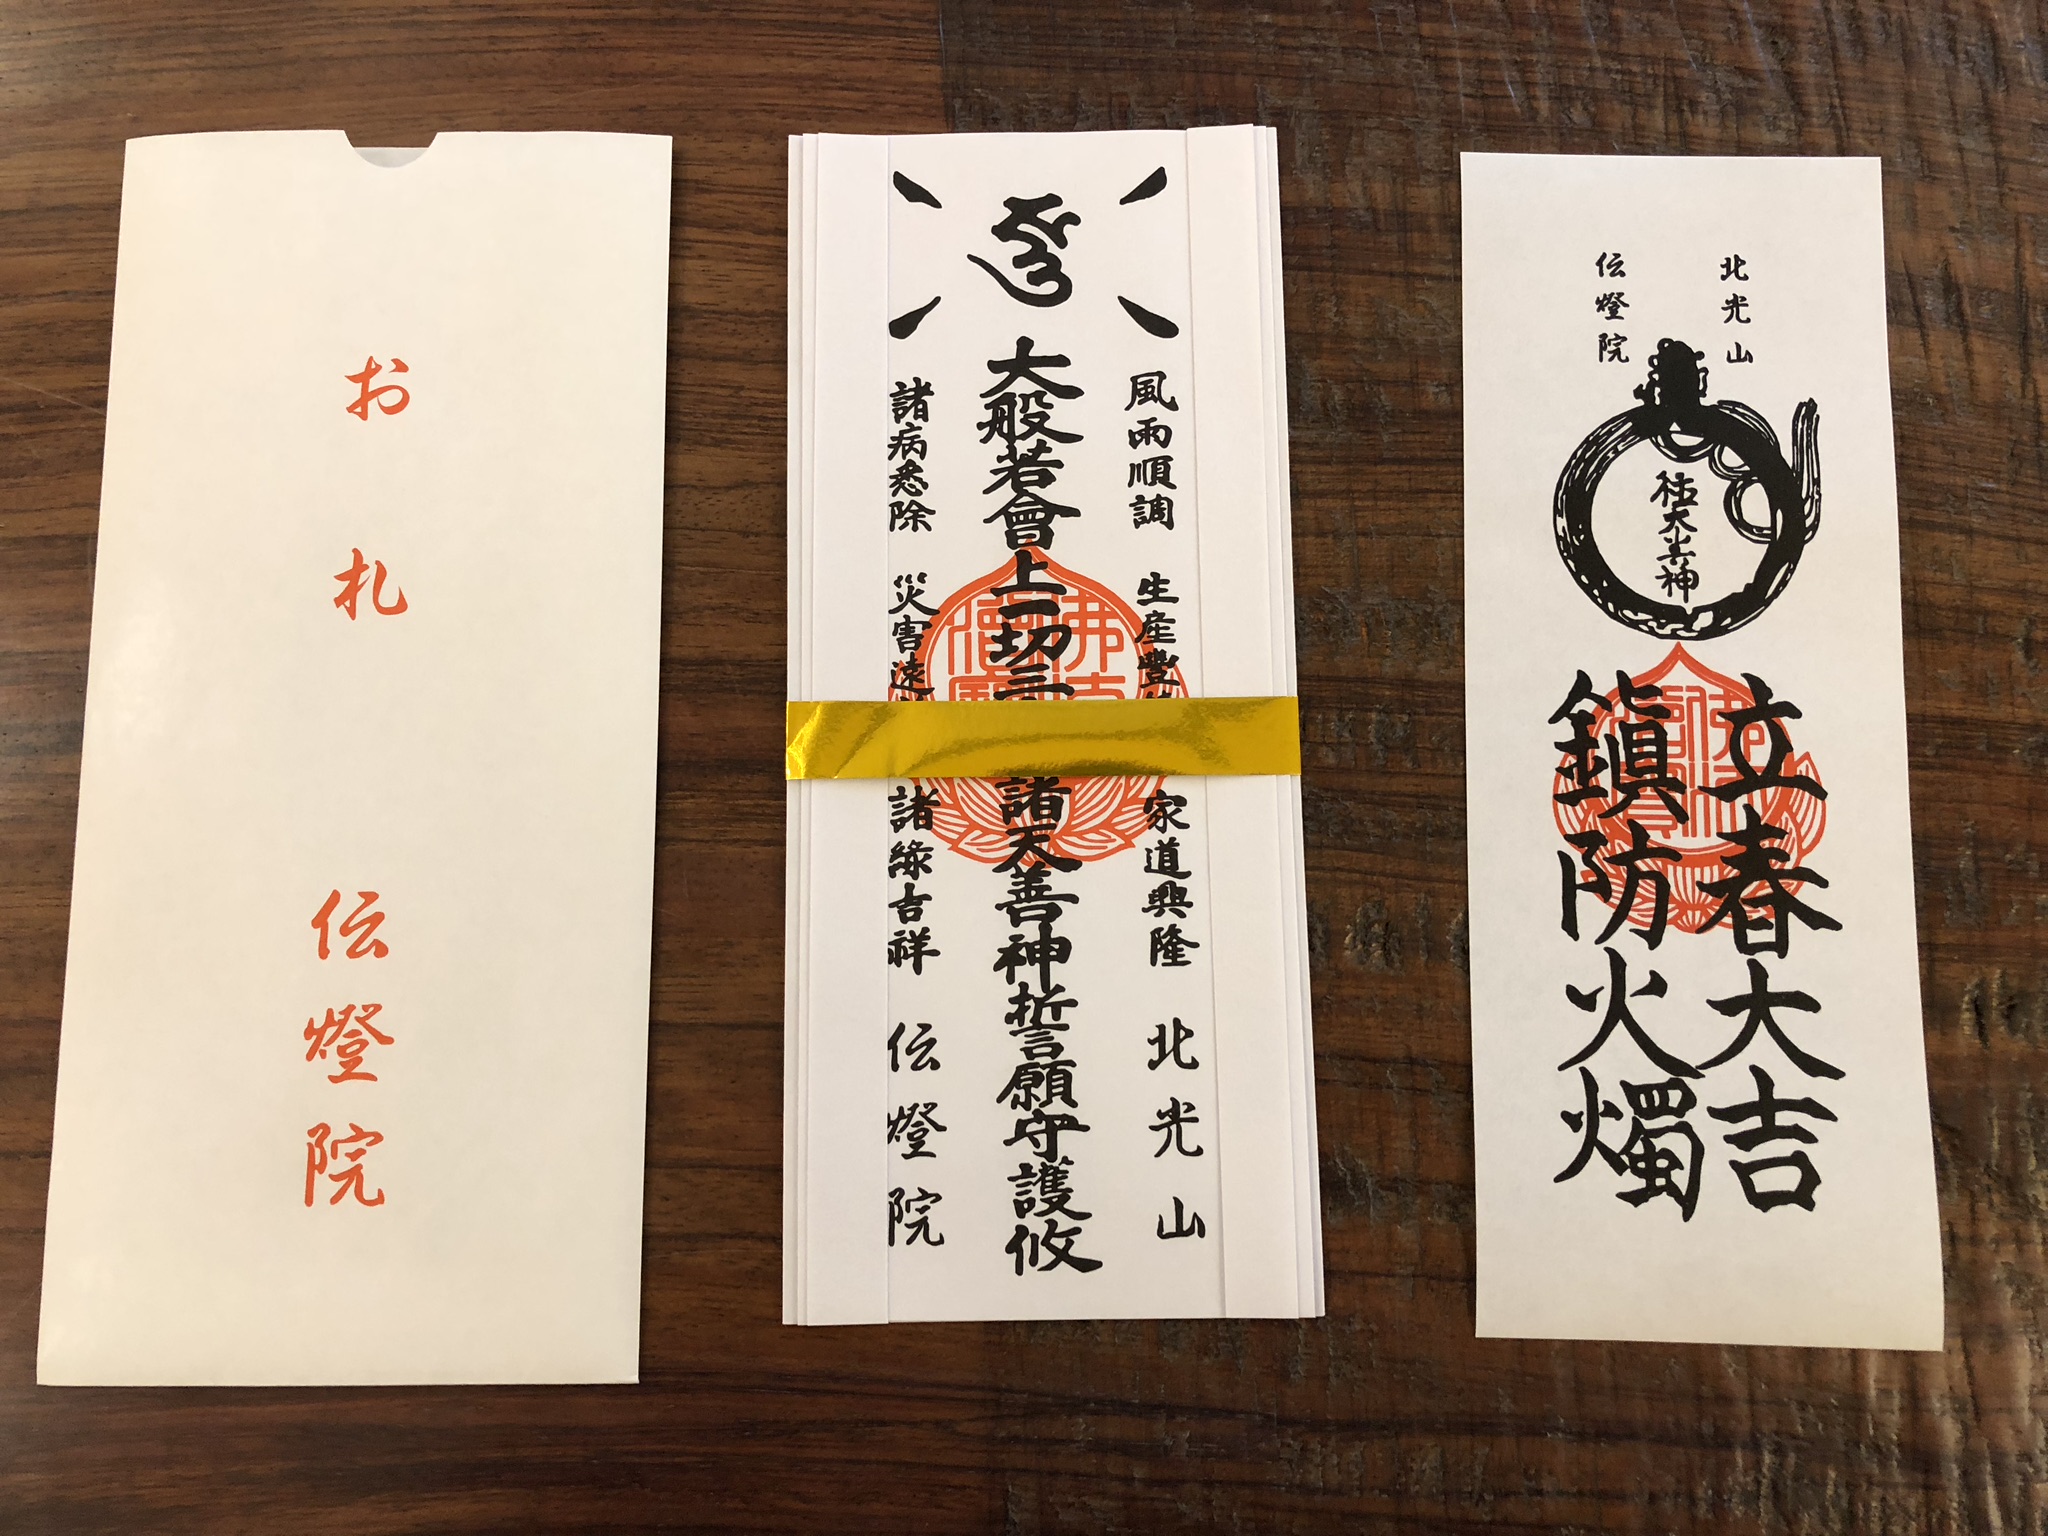 お札
伝燈院
風雨順調 生産豐 家道興隆 北光山
大般若會上一切三 諸天善神誓願守護攸
諸病悉除 災害遠 諸縁吉祥 伝燈院
北光山
伝燈院
善神
立春大吉
鎭防火燭